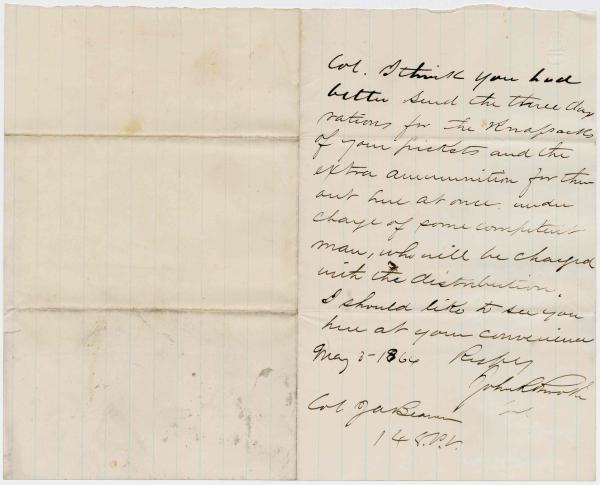 Col. I think you had
better send the three day
rations for the Knapsacks
of your pickets and the
extra ammunition for them
out here at once. under
charge of some competent
man, who will be charged
with the distribution.
I should like to see you
here at your convenience
May 3-1864 Respy
John R Brooke
Col
Col J A Beaver
148. P.V.